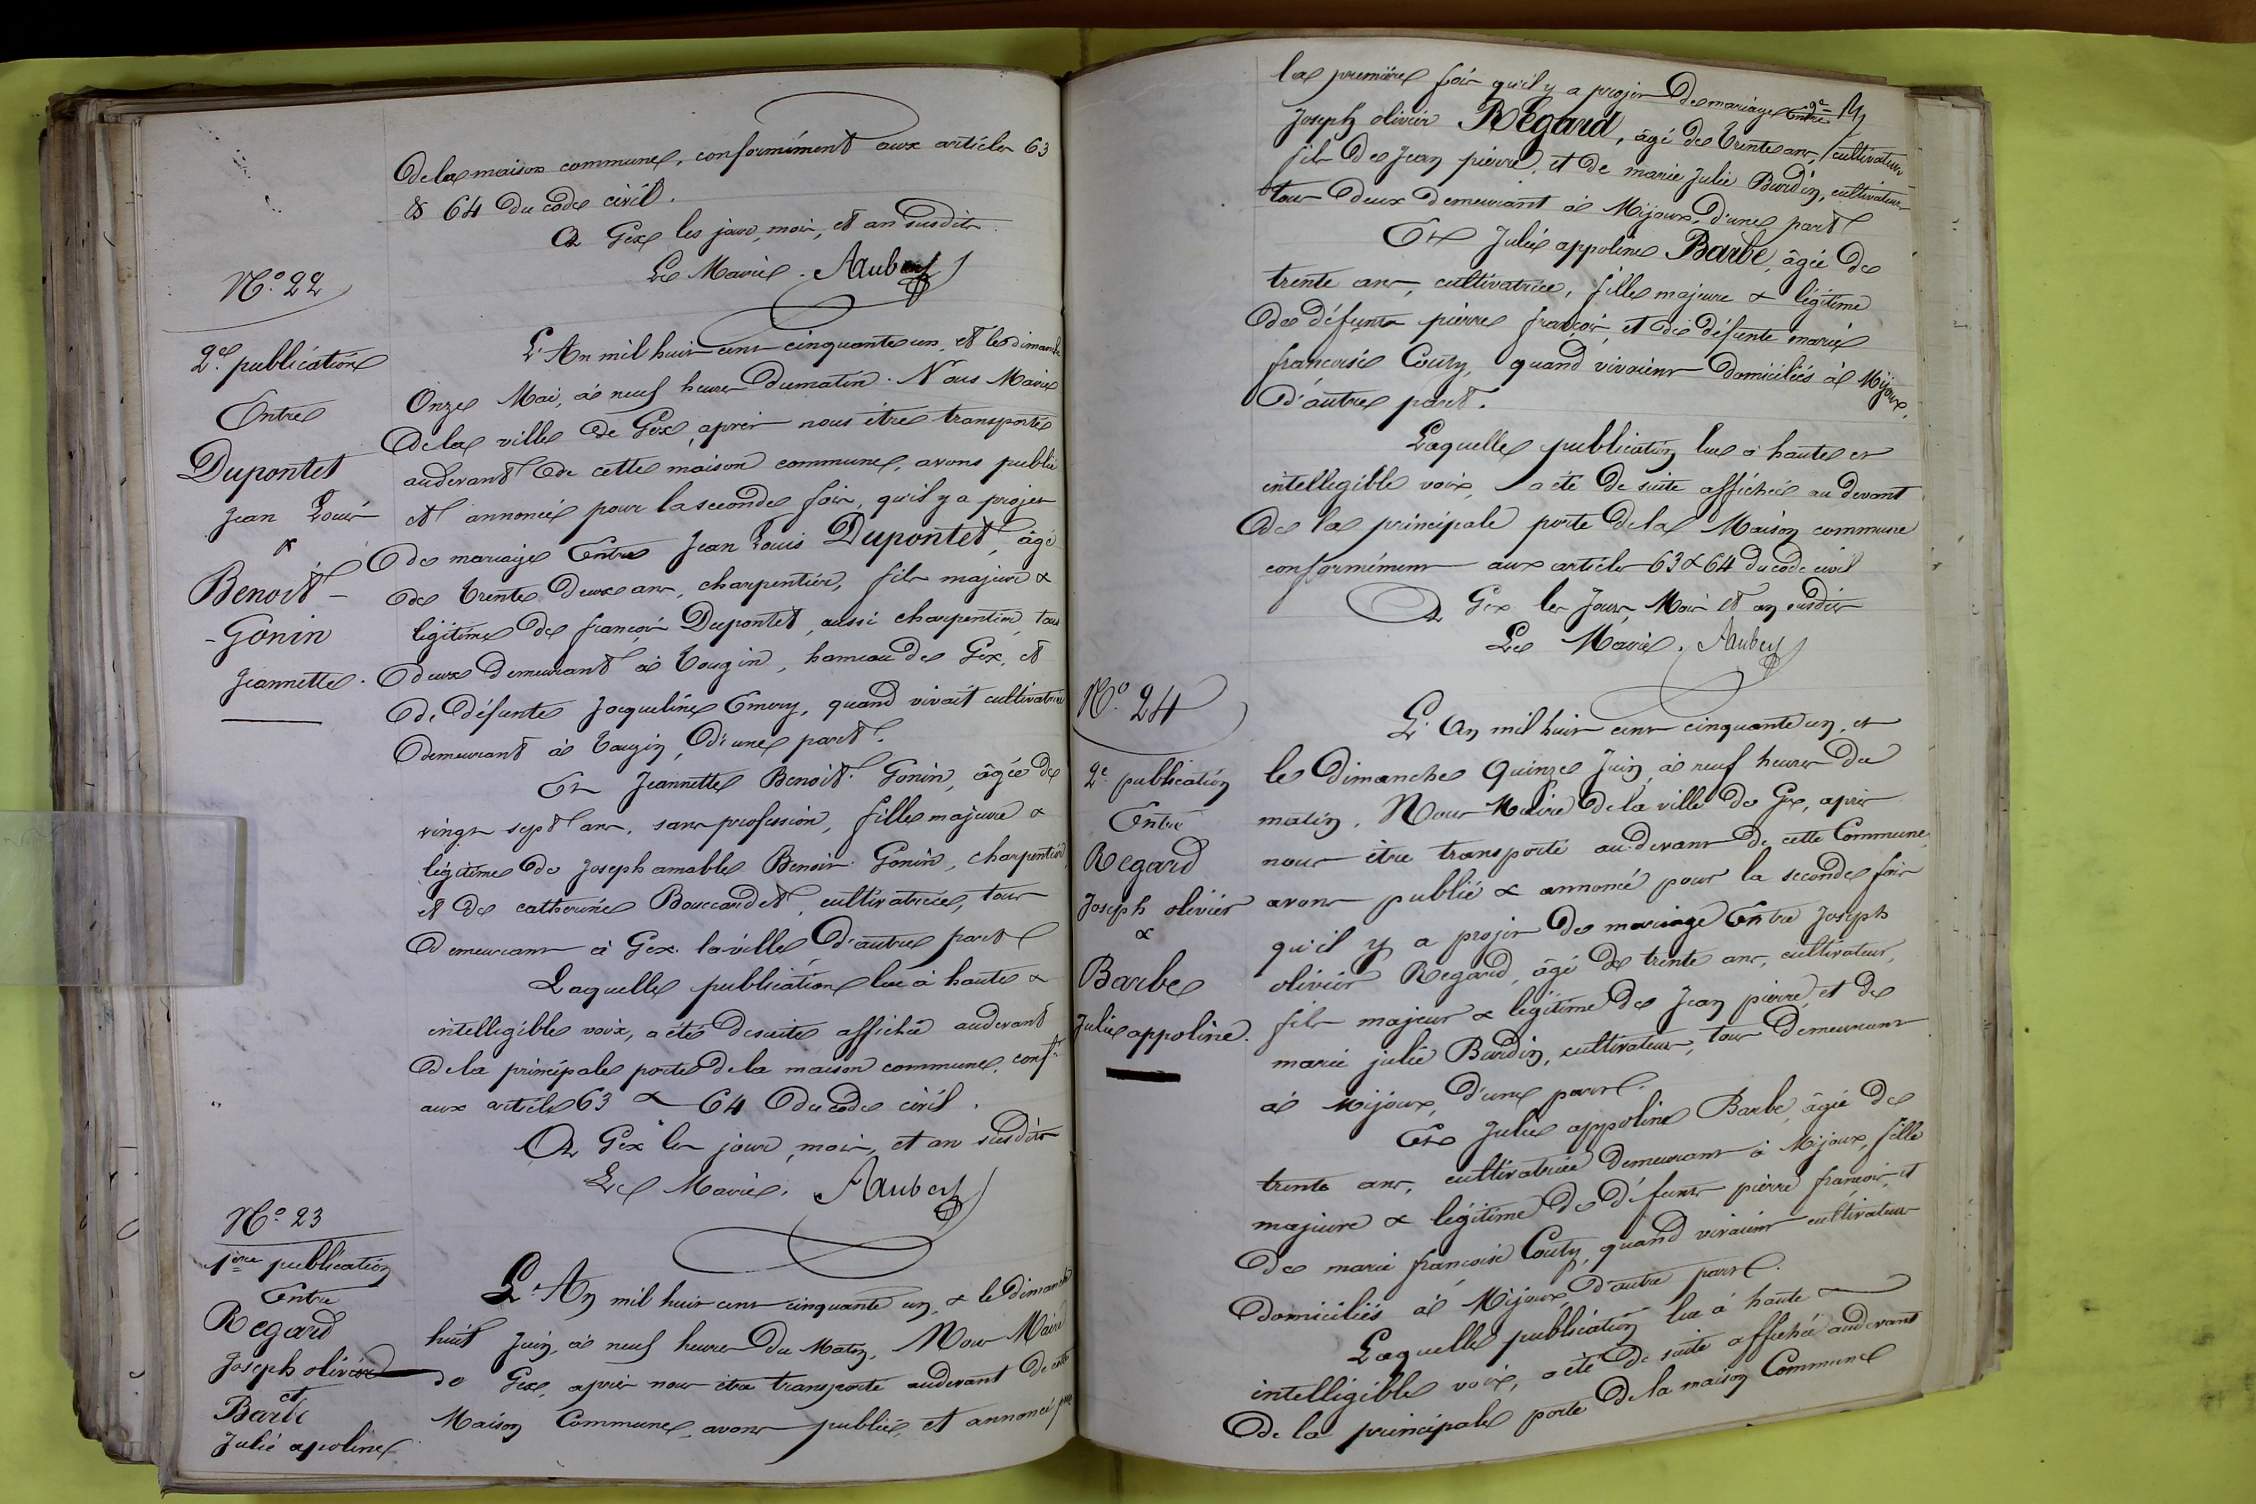 de la maison commune, conformément aux articles 63
et 64 du code civil.
A Gex les jour, mois, et an susdits.
Le Maire. Aubert
N.° 22
2.e publication
Entre
Dupontet
Jean Louis
&
Benoit-
-Gonin
Jeannette.
L'An mil huit cent cinquante un, et le dimanche
Onze Mai, à neuf heures du matin. Nous Maire
de la ville de Gex, après nous être transporté
au devant de cette maison commune, avons publié
et annoncé pour la seconde fois, qu'il y a projet
de mariage Entre Jean Louis Dupontet, âgé
de trente deux ans, charpentier, fils majeur &
légitime de françois Dupontet, aussi charpentier, tous
deux demeurant à Tougin, hameau de Gex, et
de défunte Jacqueline Emery, quand vivait cultivatrice
demeurant à Tougin, d'une part.
Et Jeannette Benoit-Gonin, âgée de
vingt sept ans, sans profession, fille majeure &
légitime de Joseph amable Benoit Gonin, charpentier,
et de catherine Bouccardet, cultivatrice, tous
demeurant à Gex la ville, d'autre part
Laquelle publication lue à haute &
intelligible voix, a été de suite affichée au devant
de la principale porte de la maison commune, conft
aux articles 63 & 64 du code civil.
A Gex les jour, mois, et an susdits
Le Maire. Aubert
N.° 23
1ère publication
Entre
Regard
Joseph olivier
et
Barbe
Julie apoline
L'An mil huit cent cinquante un, & le dimanche
huit Juin, à neuf heures du Matin, Nous Maire
de Gex, après nous être transporté au devant de cette
Maison Commune, avons publié, et annoncé pour
la première fois qu'il y a projet de mariage Entre
Joseph olivier Regard, âgé de trente ans, cultivateur
fils de Jean pierre, et de marie Julie Burdin, cultivateurs
tous deux demeurant à Mijoux, d'une part
Et Julie appoline Barbe, âgée de
trente ans, cultivatrice, fille majeure & légitime
de défunt pierre françois, et de défunte marie
françoise Couty, quand vivaient domiciliés à Mijoux,
d'autre part.
Laquelle publication lue à haute et
intelligible voix, a été de suite affichée au devant
de la principale porte de la Maison commune
conformément aux articles 63 & 64 du code civil
A Gex les Jour, Mois et an susdits
Le Maire. Aubert
N.° 24
2e publication
Entre
Regard
Joseph olivier
&
Barbe
Julie appoline.
L'An mil huit cent cinquante un, et
le Dimanche Quinze Juin, à neuf heures du
matin. Nous Maire de la ville de Gex, après
nous être transporté au devant de cette Commune,
avons publié & annoncé pour la seconde fois
qu'il y a projet de mariage Entre Joseph
olivier Regard, âgé de trente ans, cultivateur,
fils majeur & légitime de Jean pierre, et de
marie julie Burdin, cultivateurs, tous demeurant
à Mijoux, d'une part.
Et Julie appoline Barbe, âgée de
trente ans, cultivatrice demeurant à Mijoux, fille
majeure & légitime de défunts pierre françois, et
de marie françoise Couty, quand vivaient cultivateurs
domiciliés à Mijoux, d'autre part.
Laquelle publication lue à haute &
intelligible voix, a été de suite affichée au devant
de la principale porte de la maison Commune